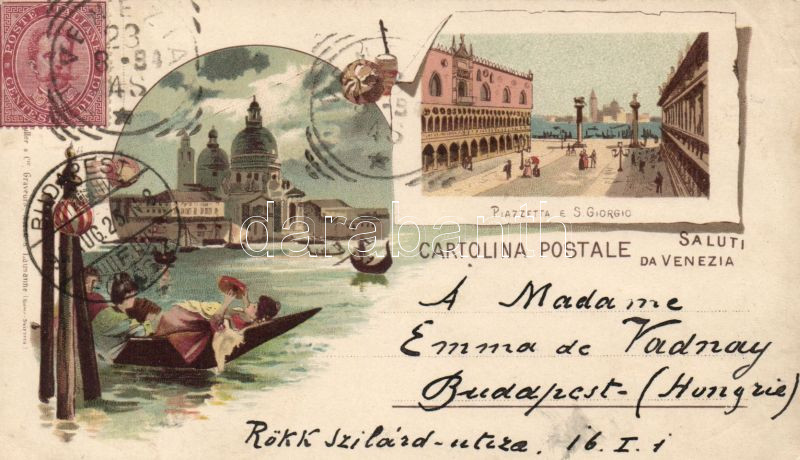 POSTE ITALIANE
CENTESIMI DIECI
VENEZIA
23
8-94
BUDAPEST
AUG. 23
PIAZZETTA E S. GIORGIO
CARTOLINA POSTALE
SALUTI
DA VENEZIA
darabanth
A Madame
Emma de Vadnay
Budapest-(Hongrie)
Rökk szilárd-utcza. 16. I. 1